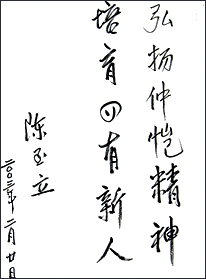 弘扬仲恺精神
培育四有新人
陈至立
二〇〇三年二月廿日